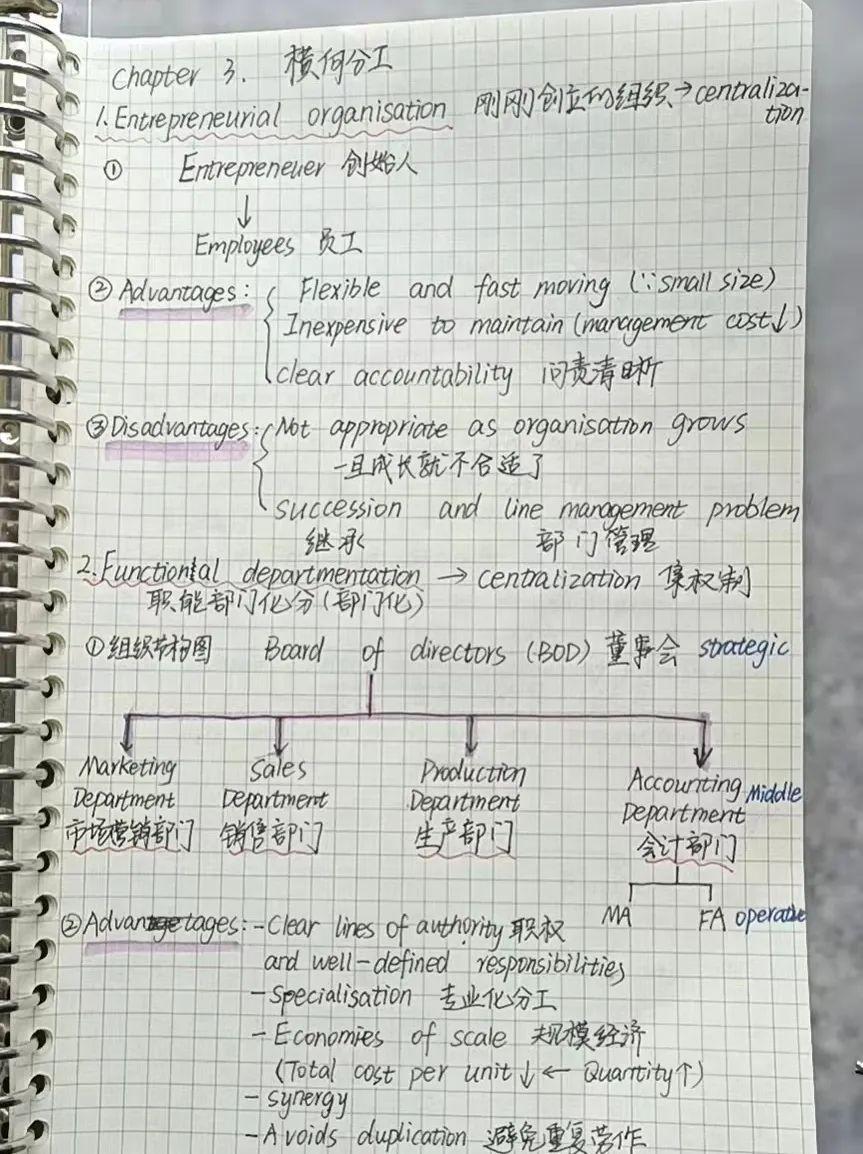 Chapter 3. 横向分工
1. Entrepreneurial organisation 刚刚创立的组织→centraliza-
tion
① Entrepreneuer 创始人
↓
Employees 员工
② Advantages: Flexible and fast moving (∵small size)
Inexpensive to maintain (management cost↓)
clear accountability 问责清晰
③ Disadvantages: Not appropriate as organisation grows
一旦成长就不合适了
succession and line management problem
继承 部门管理
2. Functional departmentation → centralization 集权制
职能部门化分(部门化)
①组织结构图 Board of directors (BOD) 董事会 strategic
Marketing Department 市场营销部门
Sales Department 销售部门
Production Department 生产部门
Accounting Department 会计部门 Middle
MA FA operative
② Advantages: -Clear lines of authority 职权
and well-defined responsibilities
-Specialisation 专业化分工
-Economies of scale 规模经济
(Total cost per unit ↓ ← Quantity↑)
-synergy
-Avoids duplication 避免重复劳作